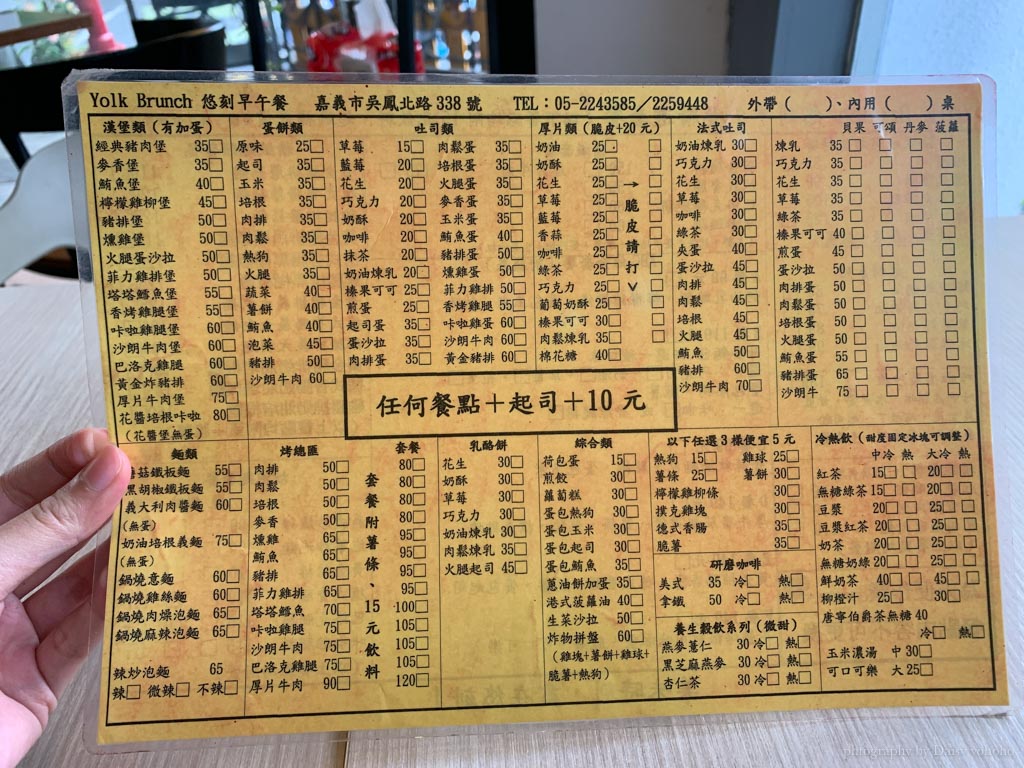 Yolk Brunch 悠刻早午餐 嘉義市吳鳳北路 338 號 TEL：05-2243585／2259448 外帶（ ）、內用（ ）桌
漢堡類（有加蛋）
經典豬肉堡 35□
麥香堡 35□
鮪魚堡 40□
檸檬雞柳堡 45□
豬排堡 50□
燻雞堡 50□
火腿蛋沙拉 50□
菲力雞排堡 50□
塔塔鱈魚堡 55□
香烤雞腿堡 55□
咔啦雞腿堡 60□
沙朗牛肉堡 60□
巴洛克雞腿 60□
黃金炸豬排 60□
厚片牛肉堡 75□
花醬培根咔啦 80□
（花醬堡無蛋）
蛋餅類
原味 25□
起司 35□
玉米 35□
培根 35□
肉排 35□
肉鬆 35□
熱狗 35□
火腿 35□
蔬菜 40□
薯餅 40□
鮪魚 40□
泡菜 45□
豬排 50□
沙朗牛肉 60□
吐司類
草莓 15□ 肉鬆蛋 35□
藍莓 20□ 培根蛋 35□
花生 20□ 火腿蛋 35□
巧克力 20□ 麥香蛋 35□
奶酥 20□ 玉米蛋 35□
咖啡 20□ 鮪魚蛋 40□
抹茶 20□ 豬排蛋 50□
奶油煉乳 20□ 燻雞蛋 50□
榛果可可 25□ 菲力雞排 50□
煎蛋 25□ 香烤雞腿 55□
起司蛋 35□ 咔啦雞蛋 60□
蛋沙拉 35□ 沙朗牛肉 60□
肉排蛋 35□ 黃金豬排 60□
厚片類（脆皮+20 元）
奶油 25□ □
奶酥 25□ □
花生 25□ → □
草莓 25□ 脆 □
藍莓 25□ 皮 □
香蒜 25□ 請 □
咖啡 25□ 打 □
綠茶 25□ ∨ □
巧克力 25□ □
葡萄奶酥 25□ □
榛果可可 30□ □
肉鬆煉乳 30□ □
棉花糖 40□
法式吐司
奶油煉乳 30□
巧克力 30□
花生 30□
草莓 30□
咖啡 30□
綠茶 30□
夾蛋 40□
蛋沙拉 45□
肉排 45□
肉鬆 45□
培根 45□
火腿 45□
鮪魚 50□
豬排 60□
沙朗牛肉 70□
貝果 可頌 丹麥 菠蘿
煉乳 35 □ □ □ □
巧克力 35 □ □ □ □
花生 35 □ □ □ □
草莓 35 □ □ □ □
綠茶 35 □ □ □ □
榛果可可 40 □ □ □ □
煎蛋 45 □ □ □ □
蛋沙拉 50 □ □ □ □
肉排蛋 50 □ □ □ □
肉鬆蛋 50 □ □ □ □
培根蛋 50 □ □ □ □
火腿蛋 50 □ □ □ □
鮪魚蛋 55 □ □ □ □
豬排蛋 65 □ □ □ □
沙朗牛 75 □ □ □ □
任何餐點＋起司＋10 元
麵類
菇鐵板麵 55□
黑胡椒鐵板麵 55□
義大利肉醬麵 60□
（無蛋）
奶油培根義麵 75□
（無蛋）
鍋燒意麵 60□
鍋燒雞絲麵 60□
鍋燒肉燥泡麵 65□
鍋燒麻辣泡麵 65□
辣炒泡麵 65
辣□ 微辣□ 不辣□
烤總匯 套餐
肉排 50□ 80□
肉鬆 50□ 80□
培根 50□ 80□
麥香 50□ 80□
燻雞 65□ 95□
鮪魚 65□ 95□
豬排 65□ 95□
菲力雞排 65□ 95□
塔塔鱈魚 70□ 100□
咔啦雞腿 75□ 105□
沙朗牛肉 75□ 105□
巴洛克雞腿 75□ 105□
厚片牛肉 90□ 120□
套餐附薯條、15元飲料
乳酪餅
花生 30□
奶酥 30□
草莓 30□
巧克力 30□
奶油煉乳 30□
肉鬆煉乳 35□
火腿起司 45□
綜合類
荷包蛋 15□
煎餃 30□
蘿蔔糕 30□
蛋包熱狗 30□
蛋包玉米 30□
蛋包起司 30□
蛋包鮪魚 35□
蔥油餅加蛋 35□
港式菠蘿油 40□
生菜沙拉 50□
炸物拼盤 60□
（雞塊+薯餅+雞球+
脆薯+熱狗）
以下任選 3 樣便宜 5 元
熱狗 15□ 雞球 25□
薯條 25□ 薯餅 30□
檸檬雞柳條 30□
撲克雞塊 30□
德式香腸 35□
脆薯 35□
研磨咖啡
美式 35 冷□ 熱□
拿鐵 50 冷□ 熱□
養生穀飲系列（微甜）
燕麥薏仁 30 冷□ 熱□
黑芝麻燕麥 30 冷□ 熱□
杏仁茶 30 冷□ 熱□
冷熱飲（甜度固定冰塊可調整）
中冷 熱 大冷 熱
紅茶 15□ □ 20□ □
無糖綠茶 15□ □ 20□ □
豆漿 20□ □ 25□ □
豆漿紅茶 20□ □ 25□ □
奶茶 20□ □ 25□ □
無糖奶綠 20□ □ 25□ □
鮮奶茶 40□ □ 45□ □
柳橙汁 25□ 30□
唐寧伯爵茶無糖 40
冷□ 熱□
玉米濃湯 中 30□
可口可樂 大 25□
photography by Daisyyohoho